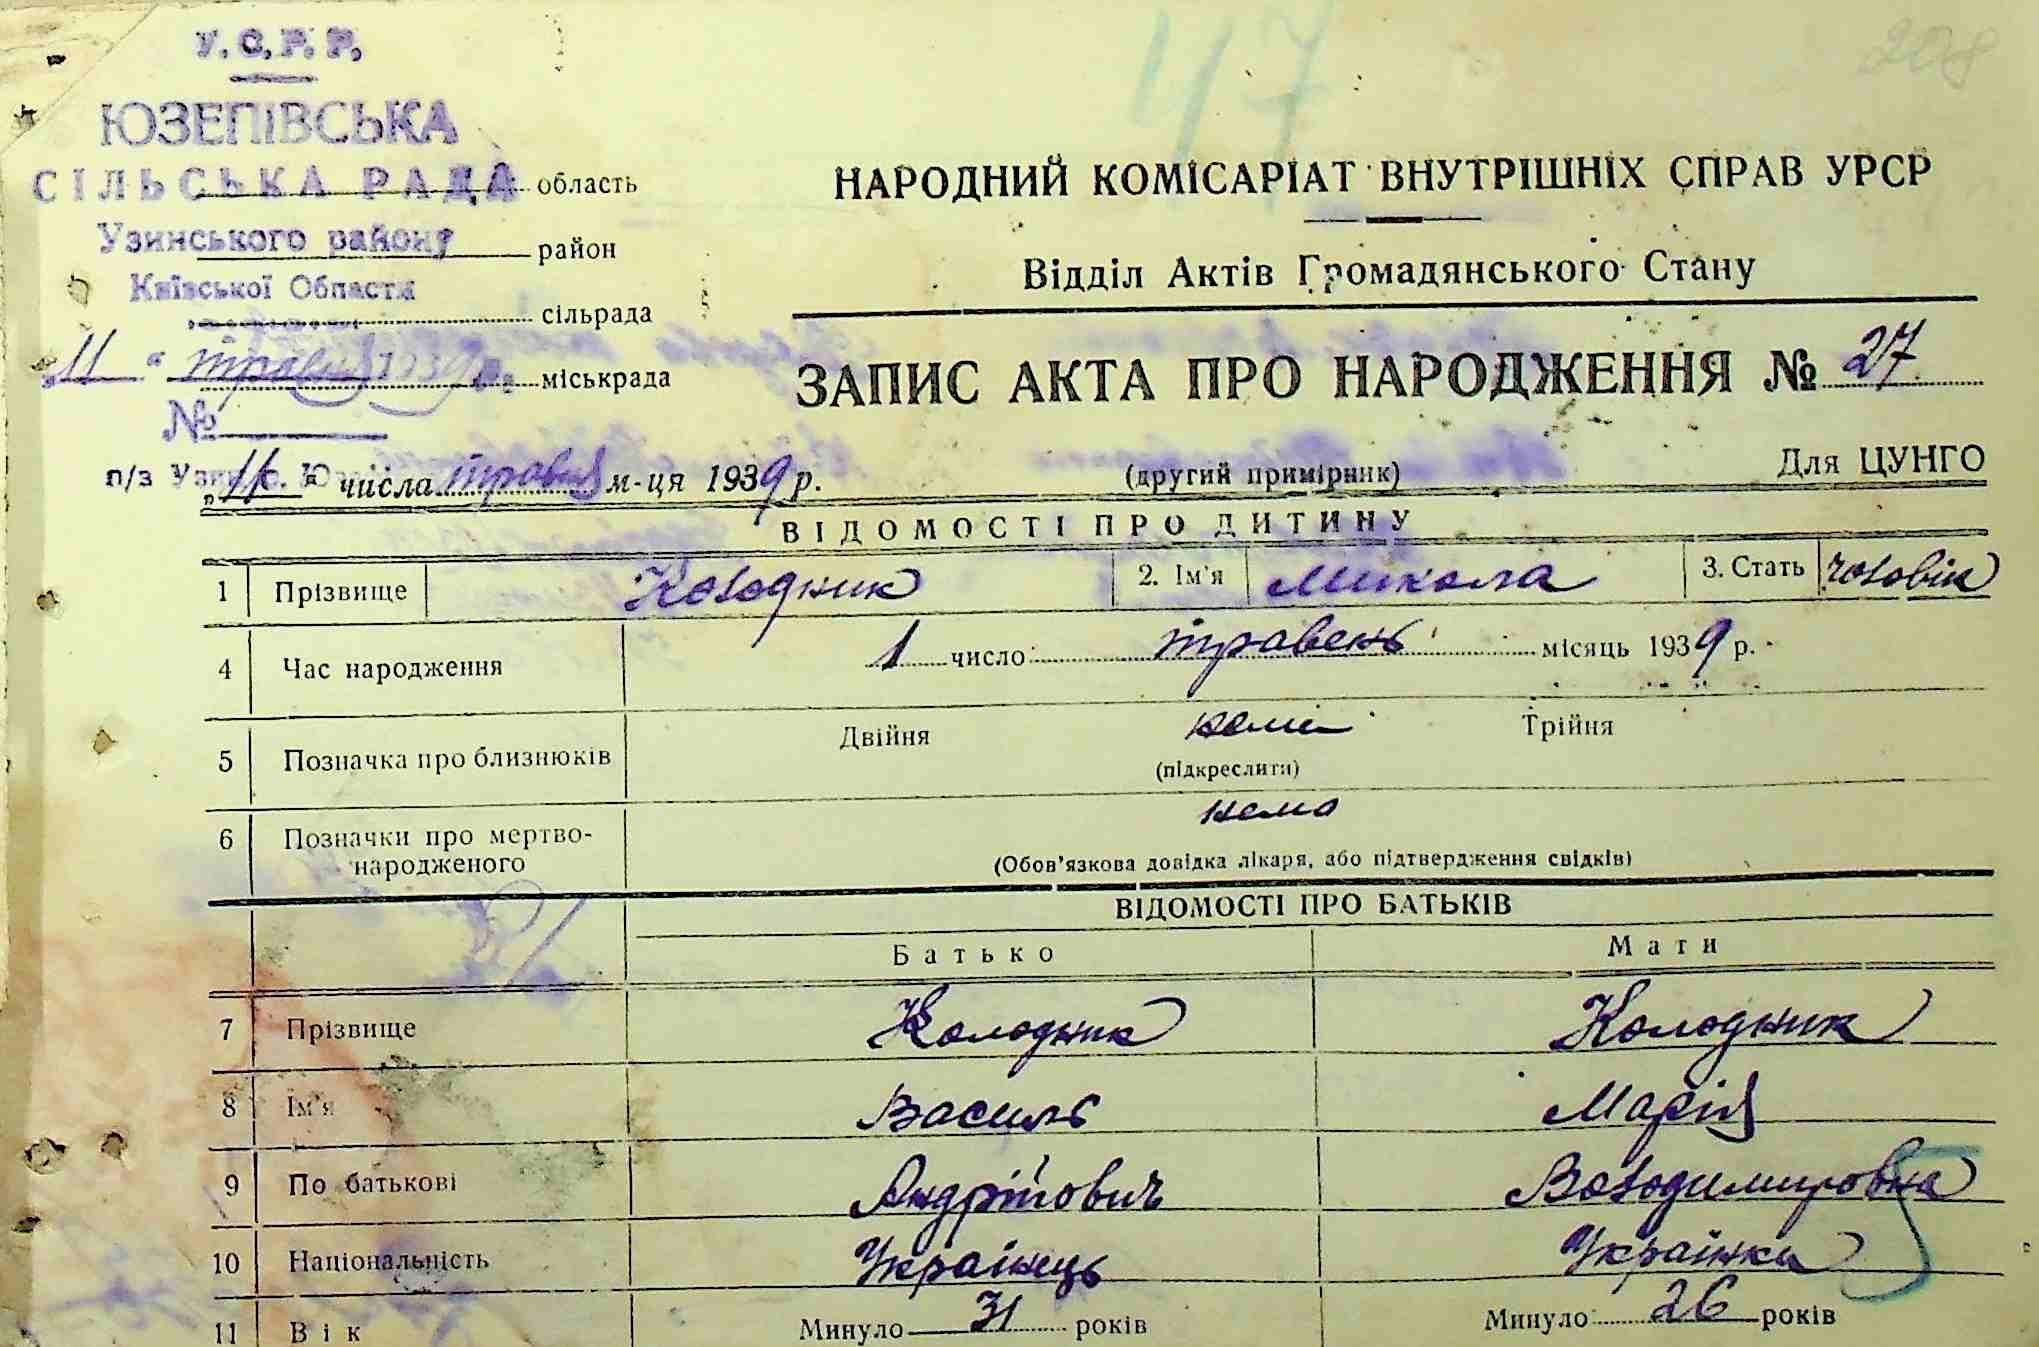 У.С.Р.Р.
ЮЗЕПІВСЬКА
СІЛЬСЬКА РАДА область
Узинського району район
Київської Области
сільрада
11 " травня 1939 р. міськрада
№
п/з Узин
47
208
НАРОДНИЙ КОМІСАРІАТ ВНУТРІШНІХ СПРАВ УРСР
Відділ Актів Громадянського Стану
ЗАПИС АКТА ПРО НАРОДЖЕННЯ № 27
„11" числа травня м-ця 1939 р. (другий примірник) Для ЦУНГО
ВІДОМОСТІ ПРО ДИТИНУ
1 Прізвище Колодник 2. Ім'я Микола 3. Стать чоловік
4 Час народження 1 число травень місяць 1939 р.
5 Позначка про близнюків Двійня нема Трійня
(підкреслити)
6 Позначки про мертво-народженого нема
(Обов'язкова довідка лікаря, або підтвердження свідків)
ВІДОМОСТІ ПРО БАТЬКІВ
Батько Мати
7 Прізвище Колодник Колодник
8 Ім'я Василь Марія
9 По батькові Андрійович Володимировна
10 Національність Українець Українка
11 Вік Минуло 31 років Минуло 26 років